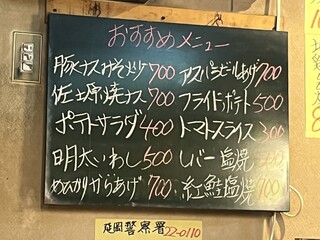 おすすめメニュー
豚ナスみそ炒め 700
佐土原焼ナス 700
ポテトサラダ 400
明太いわし 500
めひかりからあげ 700
アスパラビールあげ 700
フライドポテト 500
トマトスライス 300
レバー塩焼
紅鮭塩焼 700
延岡警察署
22-0110